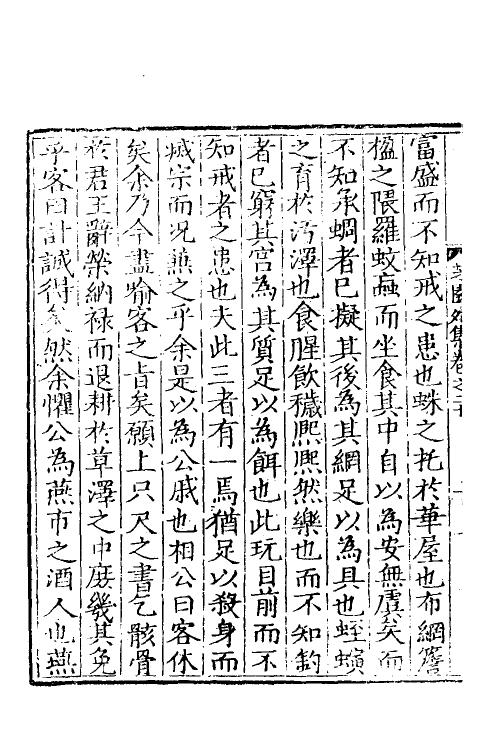 富盛而不知戒之患也蛛之托於華屋也布網簷
楹之隈羅蚊䖟而坐食其中自以為安無虞矣而
不知承蜩者已擬其後為其網足以為具也蛭螾
之育於汚澤也食腥飲穢熈熈然樂也而不知釣
者已窮其宫為其質足以為餌也此玩目前而不
知戒者之患也夫此三者有一焉猶足以殺身而
滅宗而况兼之乎余是以為公戚也相公曰客休
矣余乃今盡喻客之旨矣願上只尺之書乞骸骨
於君王辭榮納禄而退耕於草澤之中庻幾其免
乎客曰計誠得矣然余懼公為燕市之酒人也燕
集卷之二十